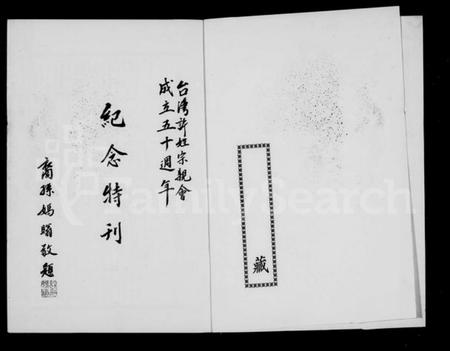 藏
台灣許姓宗親會
成立五十週年
紀念特刊
裔孫媽瑙敬題
FamilySearch